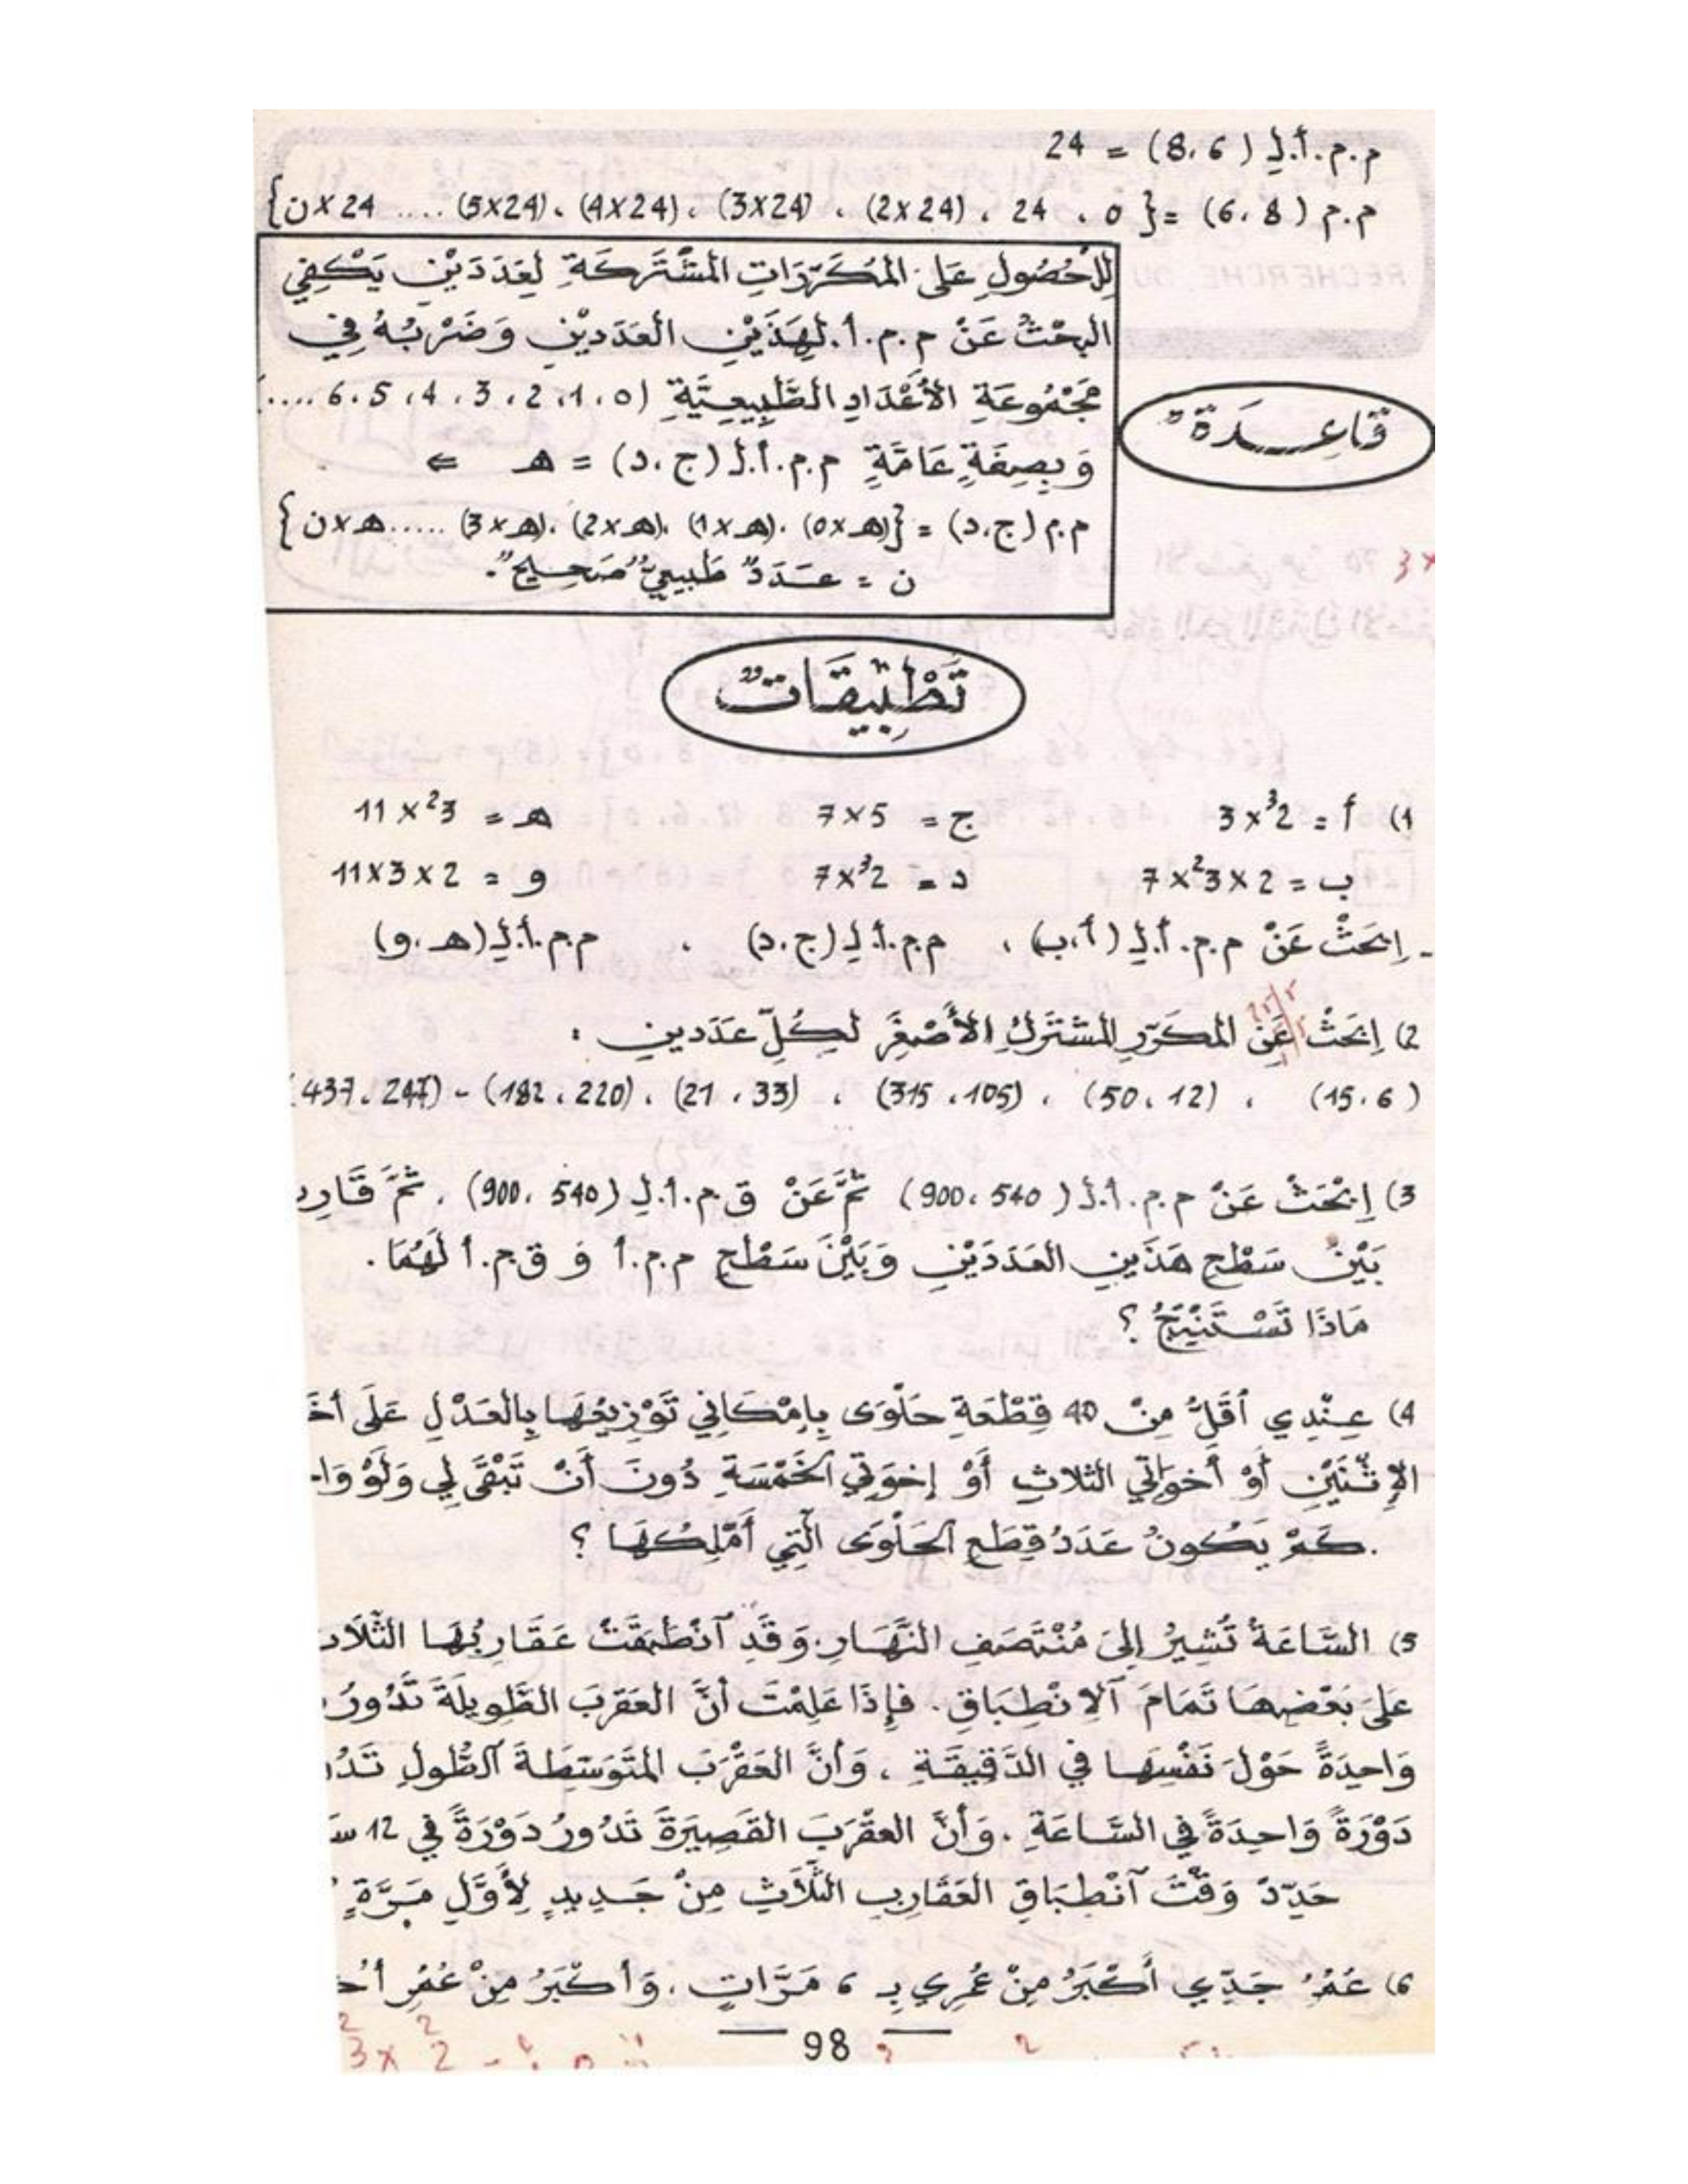 م.م.أ.لِ (8، 6) = 24
م.م (8، 6) = {0 ، 24 ، (2×24) ، (3×24) ، (4×24) ، (5×24) .... 24×ن}
لِلْحُصُولِ عَلَى المُكَرَّرَاتِ المُشْتَرَكَةِ لِعَدَدَيْنِ يَكْفِي
البَحْثُ عَنْ م.م.أ. لِهَذَيْنِ العَدَديْنِ وَضَرْبُهُ فِي
مَجْمُوعَةِ الأَعْدَادِ الطَّبِيعِيَّةِ (0 ،1 ،2 ،3 ،4 ،5 ،6 ....
قَاعِدَةٌ
وَبِصِفَةٍ عَامَّةٍ م.م.أ.لِ (ج،د) = هـ ⇐
م.م (ج،د) = {(0×هـ)، (1×هـ)، (2×هـ)، (3×هـ) ..... هـ×ن}
ن = عَدَدٌ طَبِيعِيٌّ "صَحِيحٌ".
تَطْبِيقَاتٌ
1) أ = 2³×3 ج = 5×7 هـ = 3²×11
ب = 2×3²×7 د = 2³×7 و = 2×3×11
- اِبْحَثْ عَنْ م.م.أ.لِ (أ،ب) ، م.م.أ.لِ (ج،د) ، م.م.أ.لِ (هـ،و)
2) اِبْحَثْ عَنِ المكَرَّرِ المشْتَرَكِ الأَصْغَرِ لِكُلِّ عَدَدينِ :
(6 ،15) ، (12 ،50) ، (105، 315) ، (33 ، 21) ، (220 ، 182) - (247 ،437
3) اِبْحَثْ عَنْ م.م.أ.لِ (540 ،900) ثُمَّ عَنْ ق.م.أ.لِ (540 ،900) ، ثُمَّ قَارِ
بَيْنَ سَطْحِ هَذَينِ العَدَدَيْنِ وَبَيْنَ سَطْحِ م.م.أ وَ ق.م.أ لَهُمَا.
مَاذَا تَسْتَنْتِجُ ؟
4) عِنْدِي أَقَلُّ مِنْ 40 قِطْعَةِ حَلْوَى بِإِمْكَانِي تَوْزِيعُهَا بِالعَدْلِ عَلَى أخَ
الإِثْنَيْنِ أَوْ أَخَوَاتِي الثلاثِ أَوْ إِخوَتِي الخَمْسَةِ دُونَ أَنْ تَبْقَى لِي وَلَوْ وَا
.كَمْ يَكُونُ عَدَدُ قِطَعِ الحَلْوَى الّتِي أَمْلِكُهَا ؟
5) السَّاعَةُ تُشِيرُ إِلَى مُنْتَصَفِ النَّهَارِ، وَقَدِ آنْطَبَقَتْ عَقَارِبُهَا الثَّلاَ
عَلَى بَعْضِهَا تَمَامَ آلاِنْطِبَاقِ. فإِذَا عَلِمْتَ أنَّ العَقْرَبَ الطَّوِيلَةَ تَدُورُ
وَاحِدَةً حَوْلَ نَفْسِهَا فِي الدَّقِيقَةِ ، وَأنَّ العَقْرَبَ المُتَوَسِّطَةَ الطُّولِ تَدُ
دَوْرَةً وَاحِدَةً فِي السَّاعَةِ ، وَأَنَّ العقْرَبَ القَصِيرَةَ تَدُورُ دَوْرَةً فِي 12 سَ
حَدِّدْ وَقْتَ آنْطِبَاقِ العَقَارِبِ الثَّلاَثِ مِنْ جَدِيدٍ لِأَوَّلِ مَرَّةٍ
6) عُمُرُ جَدِّي أَكْبَرُ مِنْ عُمُرِي بِـ 6 مَرَّاتٍ، وَأَكْبَرُ مِنْ عُمُرِ أُخ
98